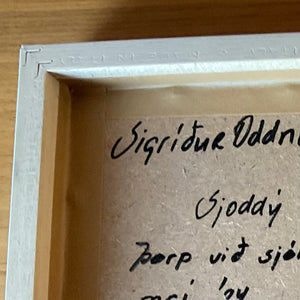 Sigríður Oddn
Sjoddý
þorp við sjó
maí '24